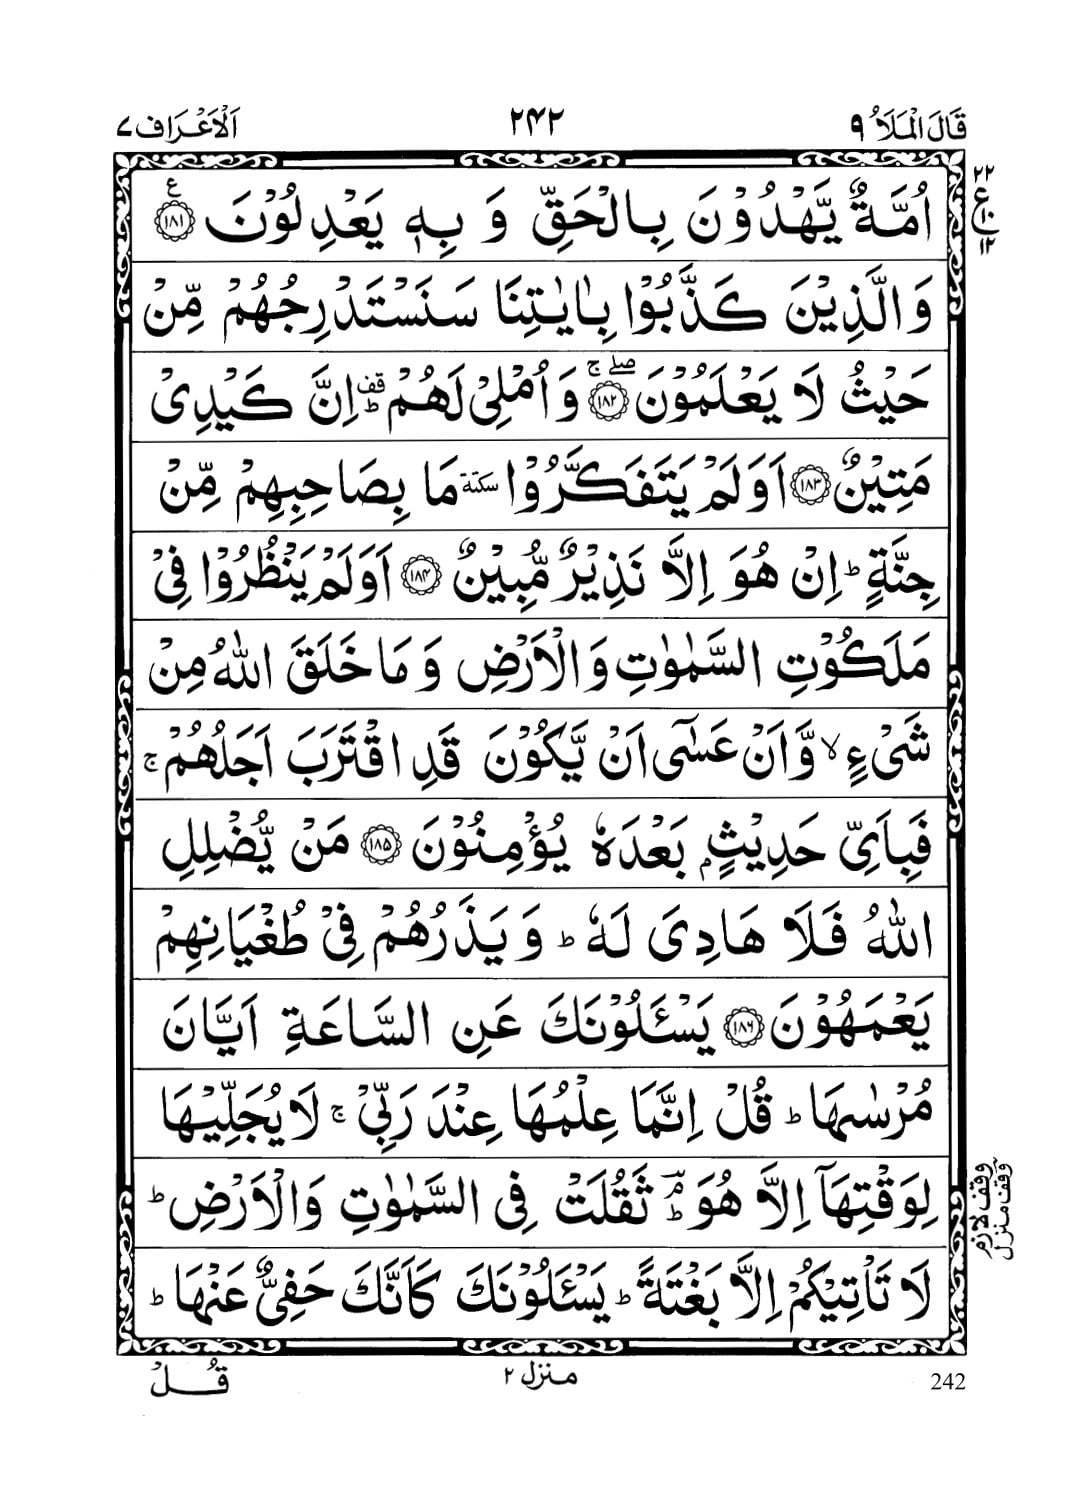 قَالَ الْمَلَاُ ٩
٢٤٢
اَلْاَعْرَاف ٧
٢٢
ع
١٠
١٢
اُمَّةٌ يَّهْدُوْنَ بِالْحَقِّ وَ بِهٖ يَعْدِلُوْنَ ۧ ﴿١٨١﴾
وَالَّذِيْنَ كَذَّبُوْا بِاٰيٰتِنَا سَنَسْتَدْرِجُهُمْ مِّنْ
حَيْثُ لَا يَعْلَمُوْنَ ۖۚ ﴿١٨٢﴾ وَاُمْلِىْ لَهُمْ ؕقف اِنَّ كَيْدِىْ
مَتِيْنٌ ﴿١٨٣﴾ اَوَلَمْ يَتَفَكَّرُوْا سكتة مَا بِصَاحِبِهِمْ مِّنْ
جِنَّةٍ ؕ اِنْ هُوَ اِلَّا نَذِيْرٌ مُّبِيْنٌ ﴿١٨٤﴾ اَوَلَمْ يَنْظُرُوْا فِىْ
مَلَكُوْتِ السَّمٰوٰتِ وَالْاَرْضِ وَ مَا خَلَقَ اللّٰهُ مِنْ
شَىْءٍ ۙ وَّاَنْ عَسٰٓى اَنْ يَّكُوْنَ قَدِ اقْتَرَبَ اَجَلُهُمْ ۚ
فَبِاَىِّ حَدِيْثٍۭ بَعْدَهٗ يُؤْمِنُوْنَ ﴿١٨٥﴾ مَنْ يُّضْلِلِ
اللّٰهُ فَلَا هَادِىَ لَهٗ ؕ وَ يَذَرُهُمْ فِىْ طُغْيَانِهِمْ
يَعْمَهُوْنَ ﴿١٨٦﴾ يَسْـَٔلُوْنَكَ عَنِ السَّاعَةِ اَيَّانَ
مُرْسٰىهَا ؕ قُلْ اِنَّمَا عِلْمُهَا عِنْدَ رَبِّىْ ۚ لَا يُجَلِّيْهَا
لِوَقْتِهَاۤ اِلَّا هُوَ ؕۘ ثَقُلَتْ فِى السَّمٰوٰتِ وَالْاَرْضِ ؕ
وقف لازم
وقف منزل
لَا تَاْتِيْكُمْ اِلَّا بَغْتَةً ؕ يَسْـَٔلُوْنَكَ كَاَنَّكَ حَفِىٌّ عَنْهَا ؕ
242
منزل ٢
قُـــلْ